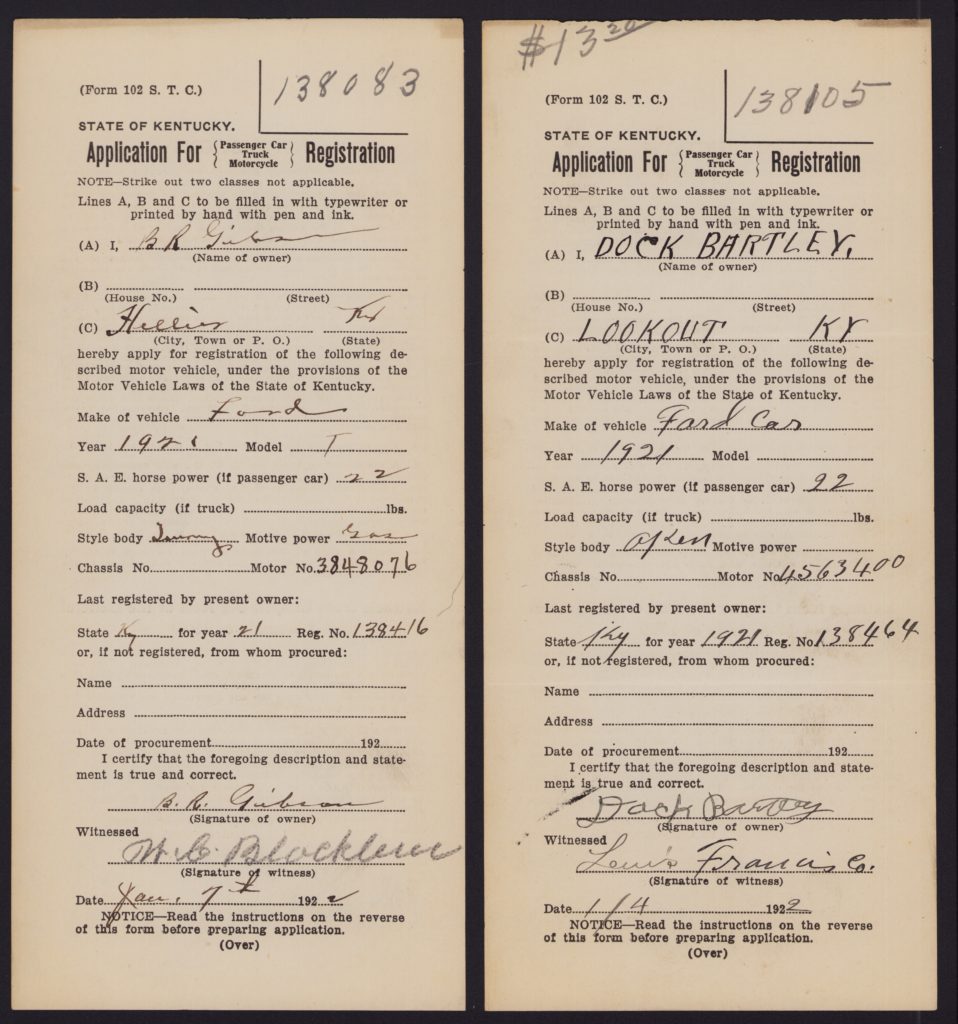 (Form 102 S. T. C.)
138083
STATE OF KENTUCKY.
Application For { Passenger Car Truck Motorcycle } Registration
NOTE—Strike out two classes not applicable.
Lines A, B and C to be filled in with typewriter or
printed by hand with pen and ink.
(A) I, B R Gibson
(Name of owner)
(B)
(House No.) (Street)
(C) Hellier Ky
(City, Town or P. O.) (State)
hereby apply for registration of the following de-
scribed motor vehicle, under the provisions of the
Motor Vehicle Laws of the State of Kentucky.
Make of vehicle Ford
Year 1921 Model T
S. A. E. horse power (if passenger car) 22
Load capacity (if truck) lbs.
Style body Motive power Gas
Chassis No. Motor No. 3848076
Last registered by present owner:
State Ky for year 21 Reg. No. 138416
or, if not registered, from whom procured:
Name
Address
Date of procurement 192
I certify that the foregoing description and state-
ment is true and correct.
B. R. Gibson
(Signature of owner)
Witnessed
W. C.
(Signature of witness)
Date Jan. 7th 1922
NOTICE—Read the instructions on the reverse
of this form before preparing application.
(Over)
$13 20
(Form 102 S. T. C.)
138105
STATE OF KENTUCKY.
Application For { Passenger Car Truck Motorcycle } Registration
NOTE—Strike out two classes not applicable.
Lines A, B and C to be filled in with typewriter or
printed by hand with pen and ink.
(A) I, DOCK BARTLEY.
(Name of owner)
(B)
(House No.) (Street)
(C) LOOKOUT KY
(City, Town or P. O.) (State)
hereby apply for registration of the following de-
scribed motor vehicle, under the provisions of the
Motor Vehicle Laws of the State of Kentucky.
Make of vehicle Ford Car
Year 1921 Model
S. A. E. horse power (if passenger car) 22
Load capacity (if truck) lbs.
Style body open Motive power
Chassis No. Motor No. 4563400
Last registered by present owner:
State Ky for year 1921 Reg. No. 138464
or, if not registered, from whom procured:
Name
Address
Date of procurement 192
I certify that the foregoing description and state-
ment is true and correct.
Dock Bartley
(Signature of owner)
Witnessed
Francis Co.
(Signature of witness)
Date 1/4 1922
NOTICE—Read the instructions on the reverse
of this form before preparing application.
(Over)